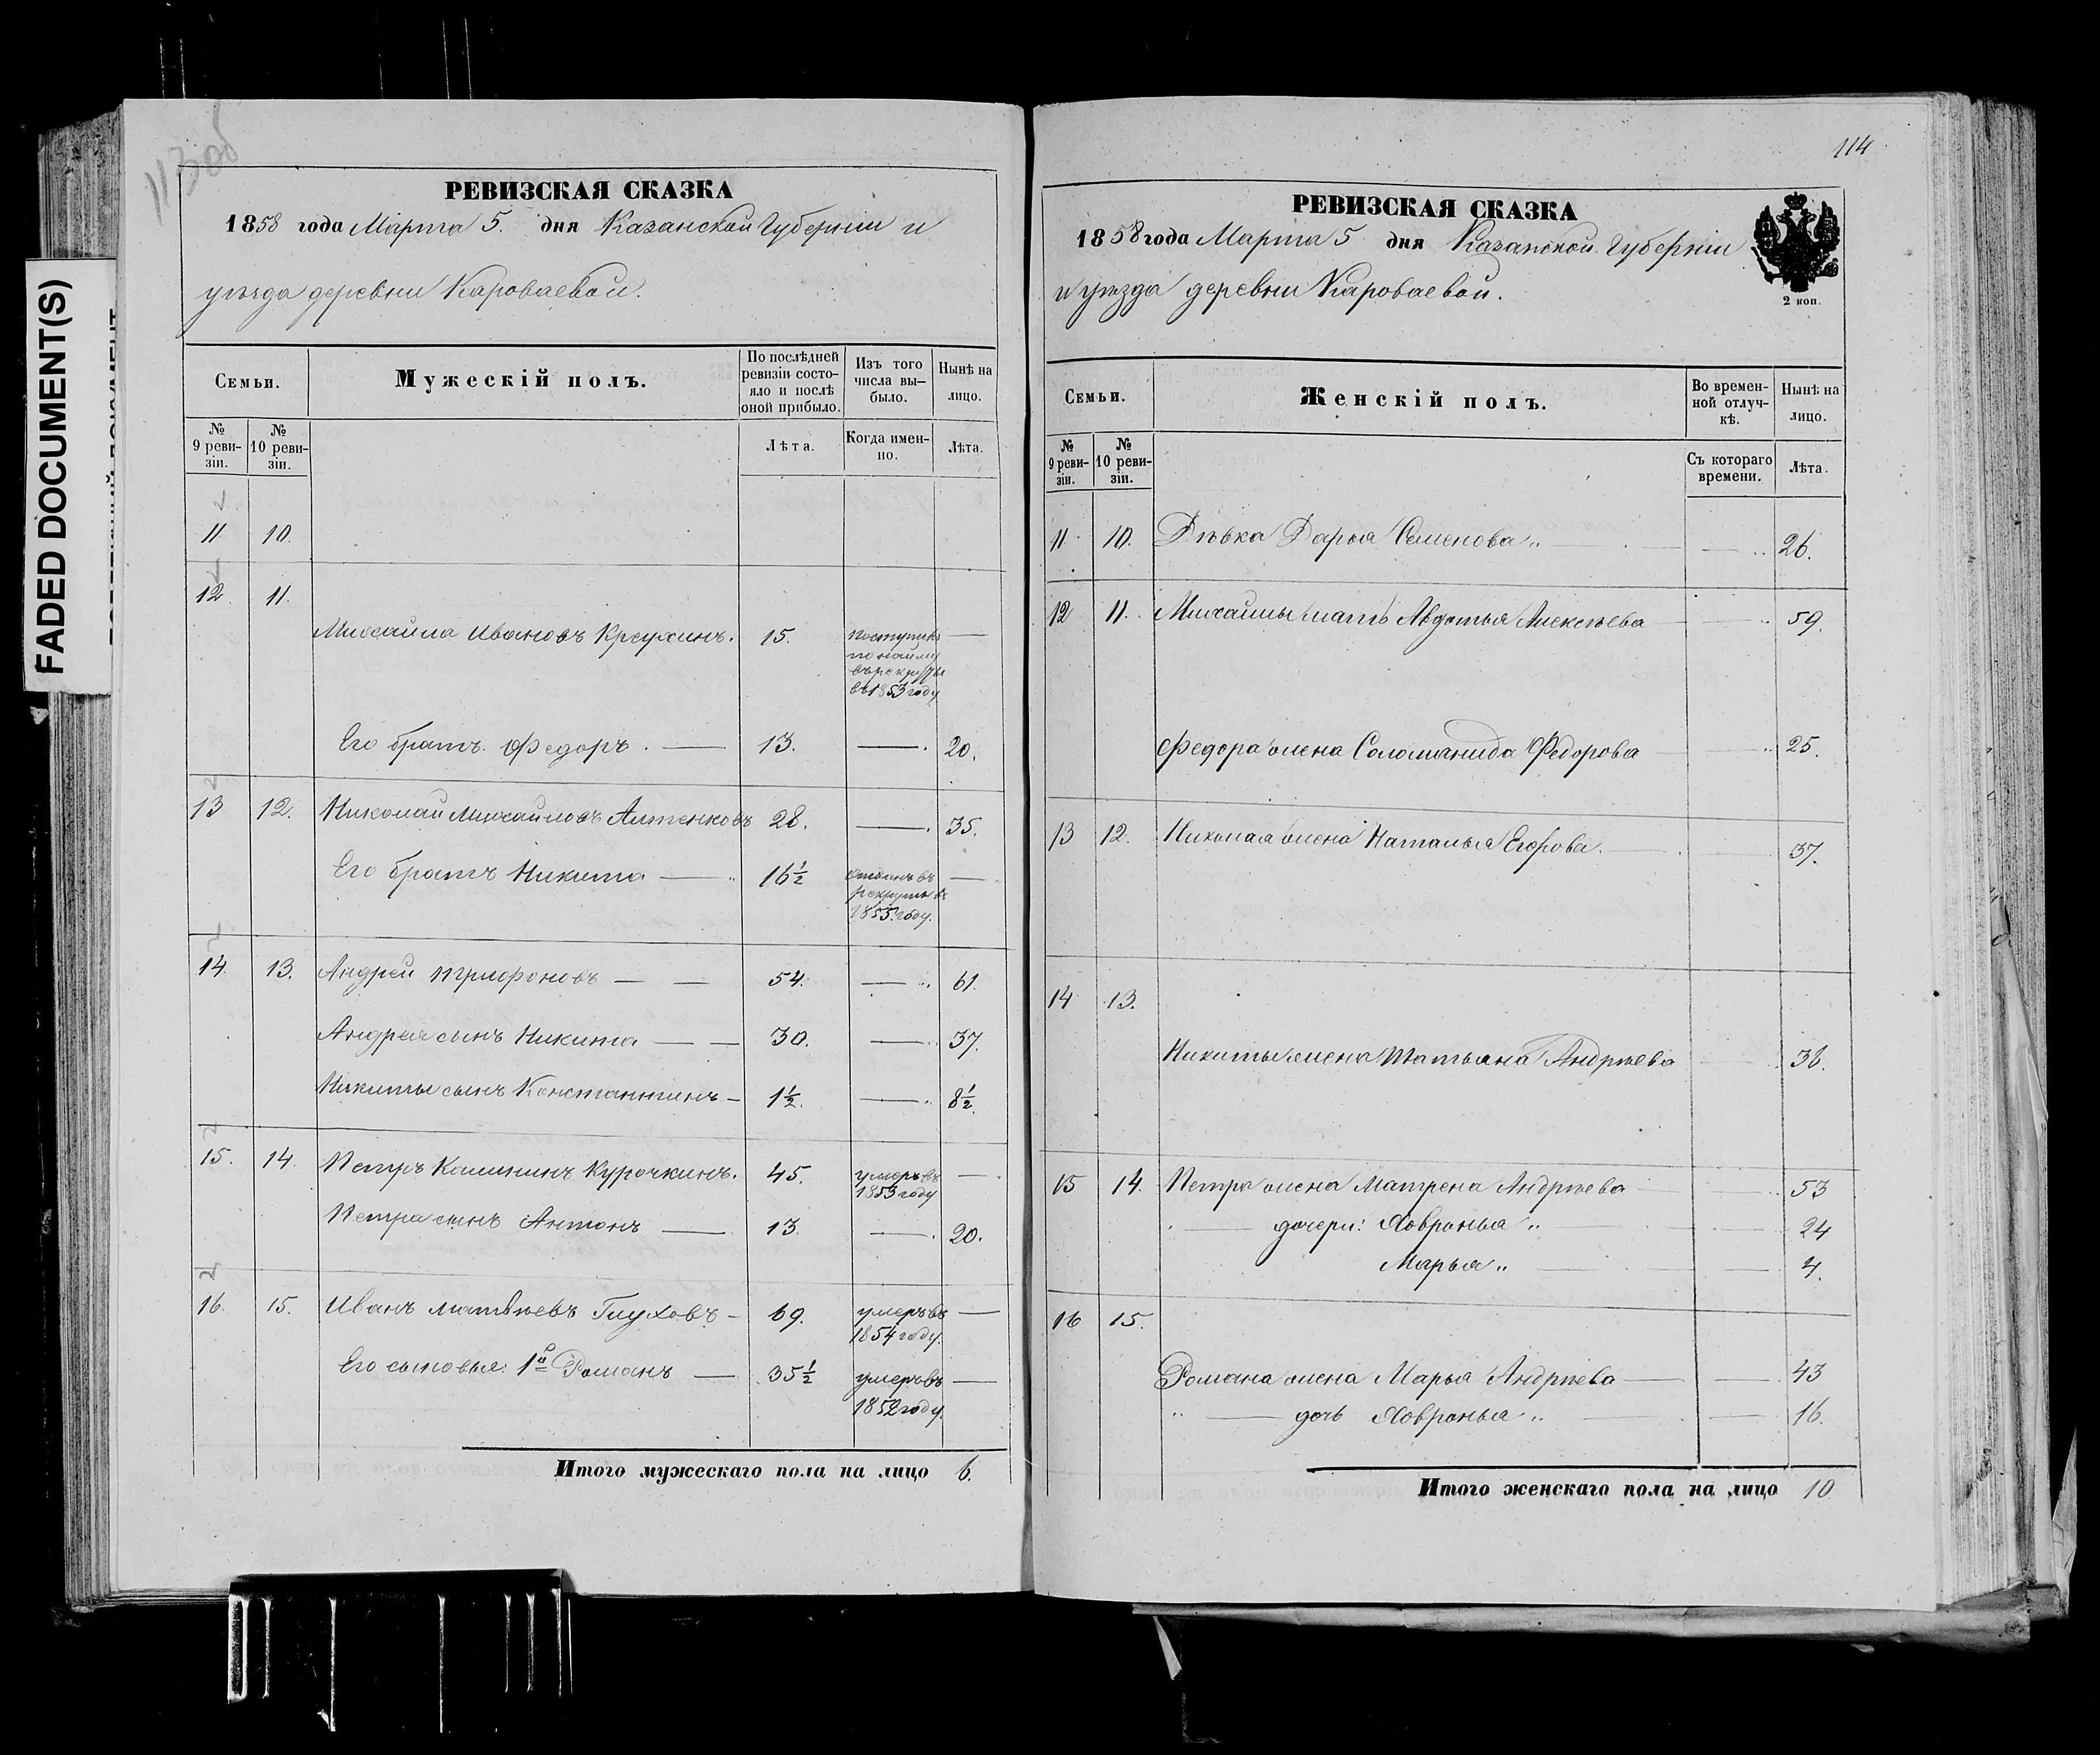 113об
РЕВИЗСКАЯ СКАЗКА
1858 года Марта 5. дня Казанской Губерніи и
уѣзда деревни Кароваевой.
Семьи.
Мужескій полъ.
По послѣдней ревизіи состояло и послѣ оной прибыло.
Изъ того числа выбыло.
Нынѣ на лицо.
№ 9 ревизіи.
№ 10 ревизіи.
Лѣта.
Когда именно.
Лѣта.
11. 10.
12. 11.
Михайла Ивановъ 15. поступилъ —
по найму
въ рекруты
въ 1853 году
Его братъ Федоръ. — 13. —. 20.
13 12. Николай Михайловъ 28. —. 35.
Его братъ Никита — 16½ отданъ въ —
рекруты въ
1855. году.
14. 13. Андрей Трифоновъ — — 54. — 61.
Андрея сынъ Никита — — 30. —. 37.
Никиты сынъ Константинъ — 1½. —. 8½.
15. 14. Петръ Калининъ Курочкинъ. 45. умеръ въ —
1853 году
Петра сынъ Антонъ — 13. —. 20.
16. 15. Иванъ Матвѣевъ Глуховъ — 69. умеръ въ —
1854 году.
Его сыновья: 1й Романъ — 35½ умеръ въ —
1852 году.
Итого мужескаго пола на лицо 6.
114
РЕВИЗСКАЯ СКАЗКА
1858 года Марта 5 дня Казанской Губерніи
и уѣзда деревни Кароваевой.
2 коп.
Семьи.
Женскій полъ.
Во временной отлучкѣ.
Нынѣ на лицо.
№ 9 ревизіи.
№ 10 ревизіи.
Съ котораго времени.
Лѣта.
11. 10. Дѣвка Дарья Семенова „ — 26.
12 11. Михайлы мать Авдотья Алексѣева — 59.
Федора жена Соломанида Федорова 25.
13 12. Николая жена Наталья Егорова. — 37.
14 13.
Никиты жена Татьяна Андрѣева — 38.
15 14. Петра жена Матрена Андрѣева — 53
— дочери: Ховронья „ — 24
Марья „ — 4.
16 15.
Романа жена Марья Андрѣева — — 43
„ — дочь Ховронья „ — 16.
Итого женскаго пола на лицо 10
FADED DOCUMENT(S)